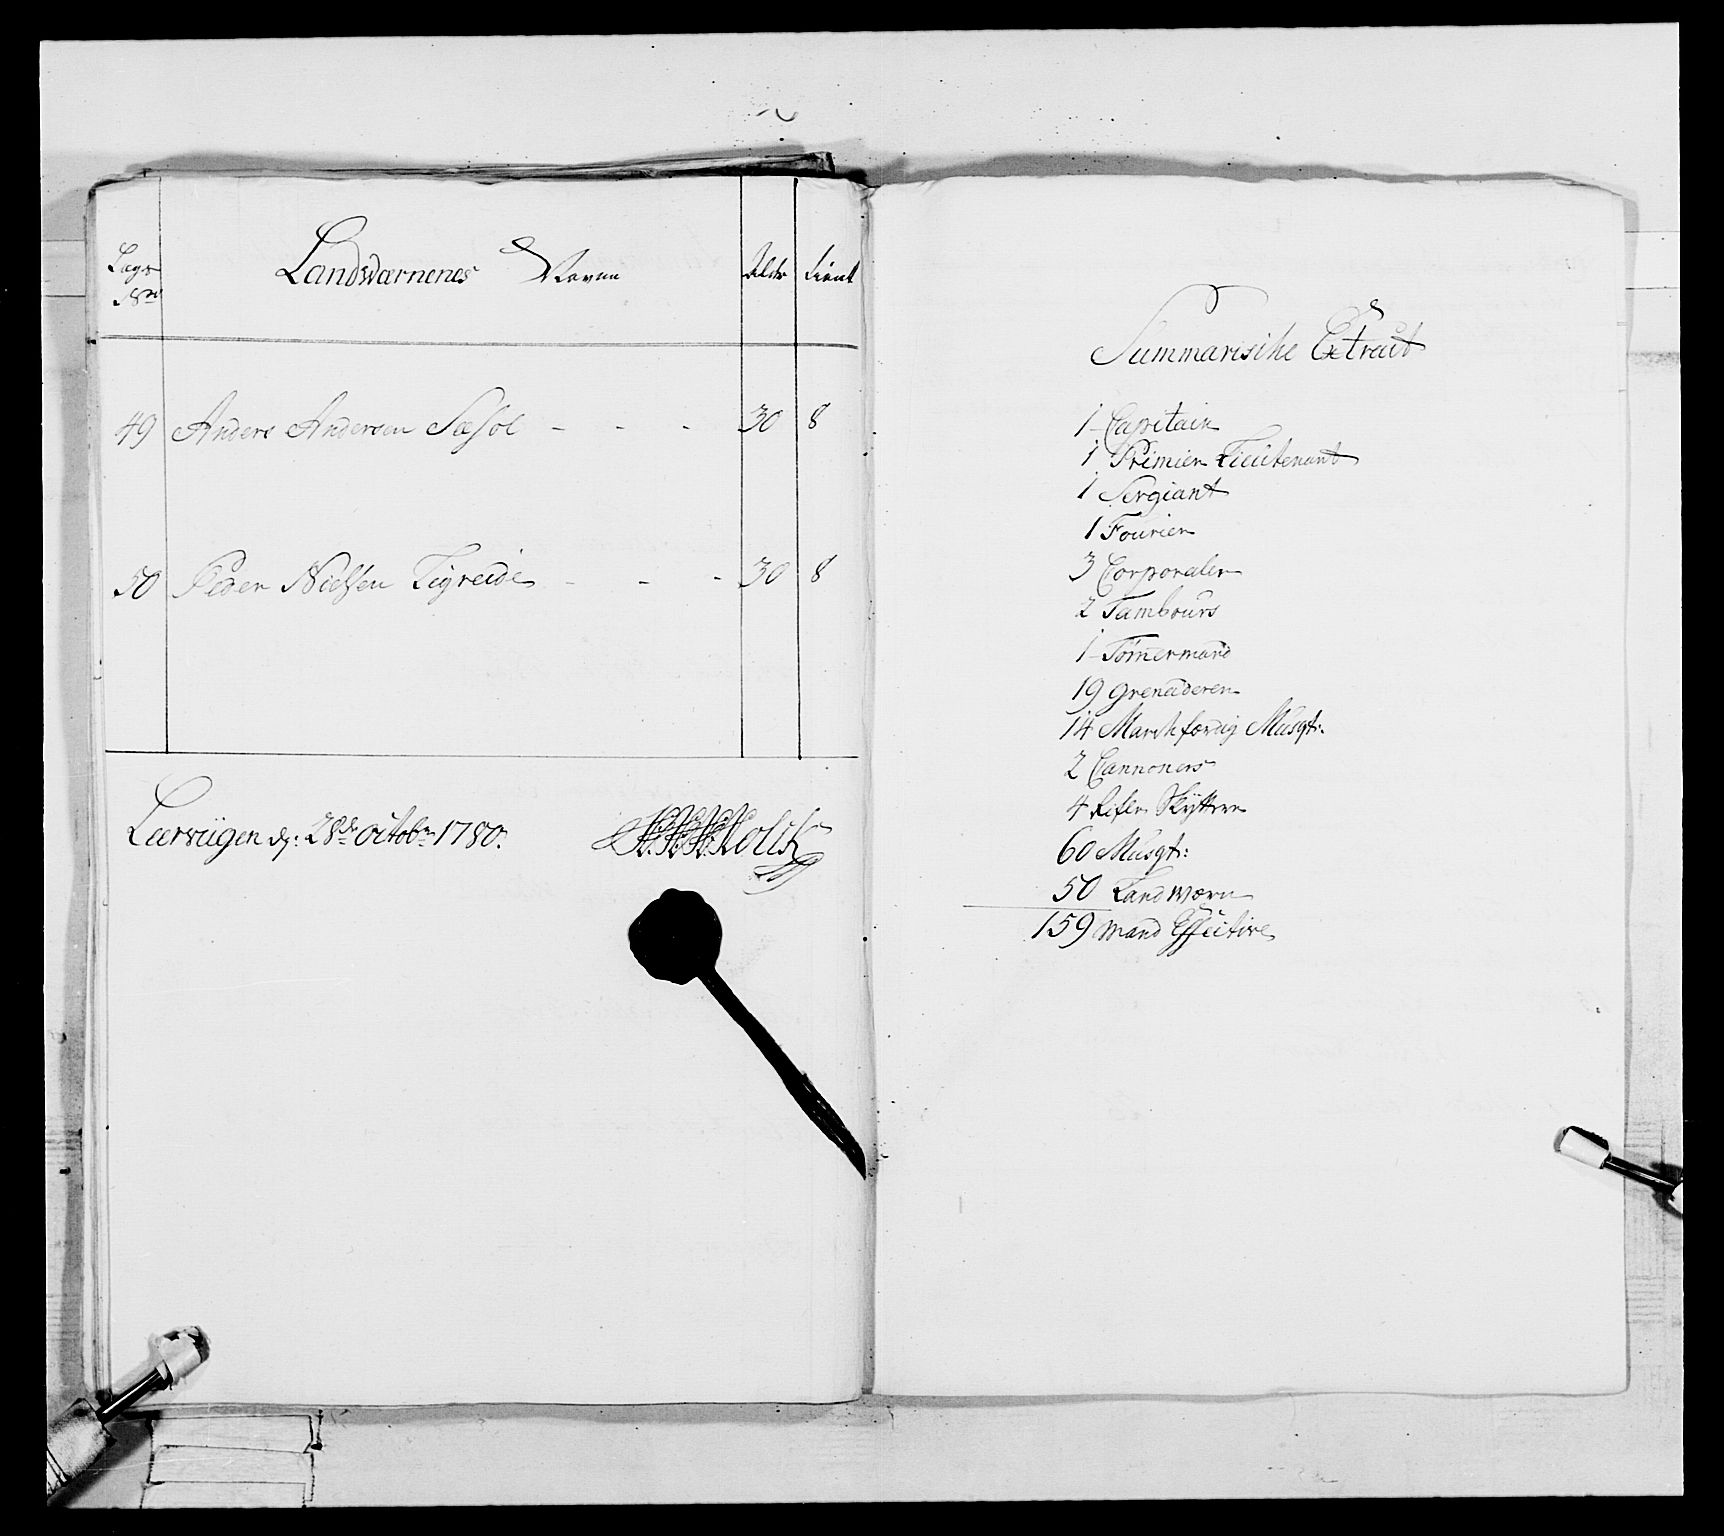 Lags No Landwærnenes Navne Alder tient
49 Anders Andersen Sæsol - - - 30 8
50 Peder Nielsen Tigreide - - - 30 8
Leervügen d: 28de Octobr 1780.
Summariske Extract
1 Capitain
1 Primier Lieutenant
1 Sergiant
1 Fourier
3 Corporaler
2 Tambours
1 Tömermand
19 Grenaderer
14 Marchfærdig Musqt:
2 Cannoners
4 Rifle Skyttere
60 Musqt:
50 Landwærn
159 Mand Effective